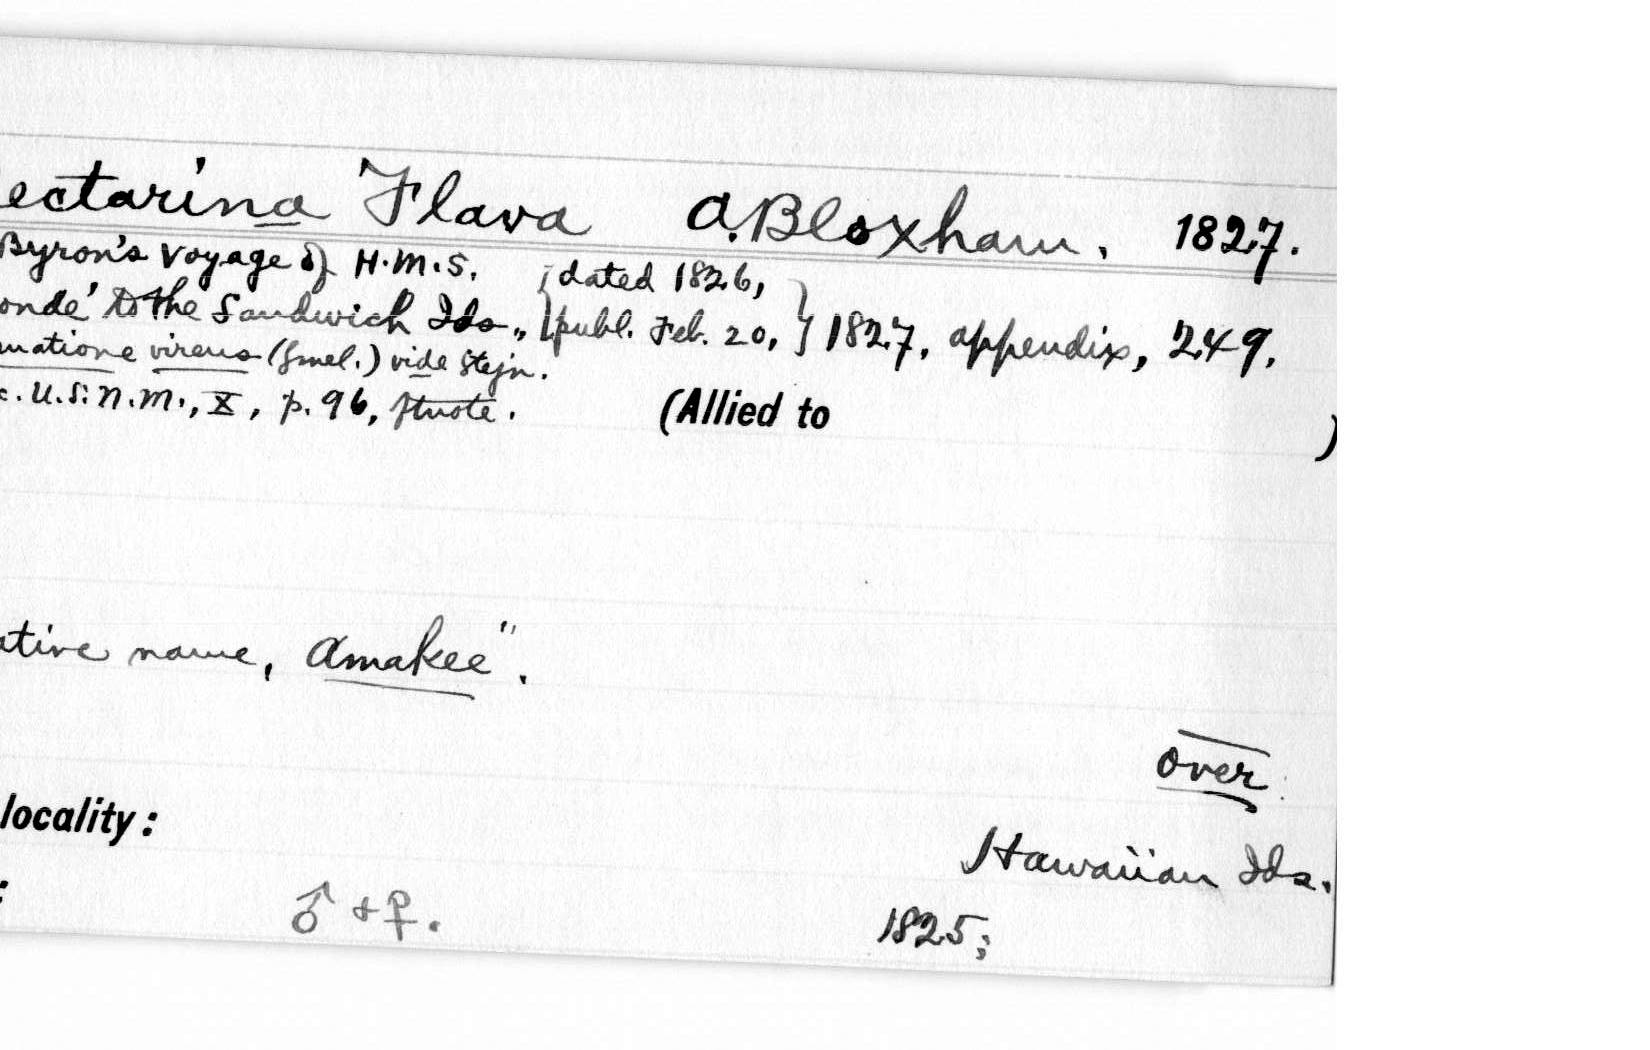 ectarina Flava A. Bloxham. 1827.
Byron's Voyage of H.M.S. {dated 1826,
onde' to the Sandwich Ids., {publ. Feb. 20, } 1827, appendix, 249.
matione virens (Gmel.) vide Stejn.
c. U.S. N.M., X, p. 96, ftnote. (Allied to )
ative name, Amakee".
over
locality: Hawaiian Ids.
: ♂ + ♀. 1825;